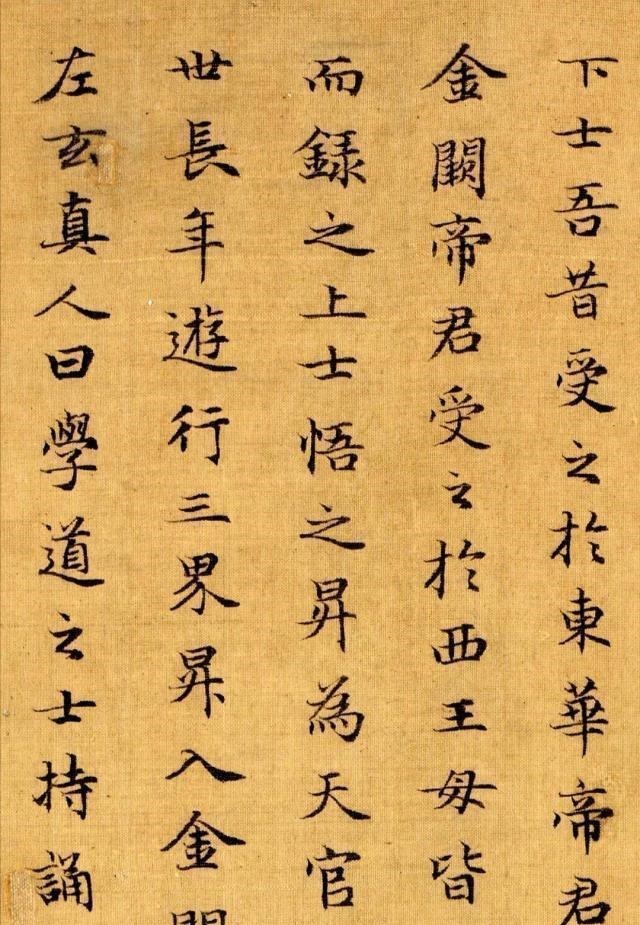 下士吾昔受之於東華帝君
金闕帝君受之於西王母皆
而録之上士悟之昇為天官
世長年遊行三界昇入金門
左玄真人曰學道之士持誦